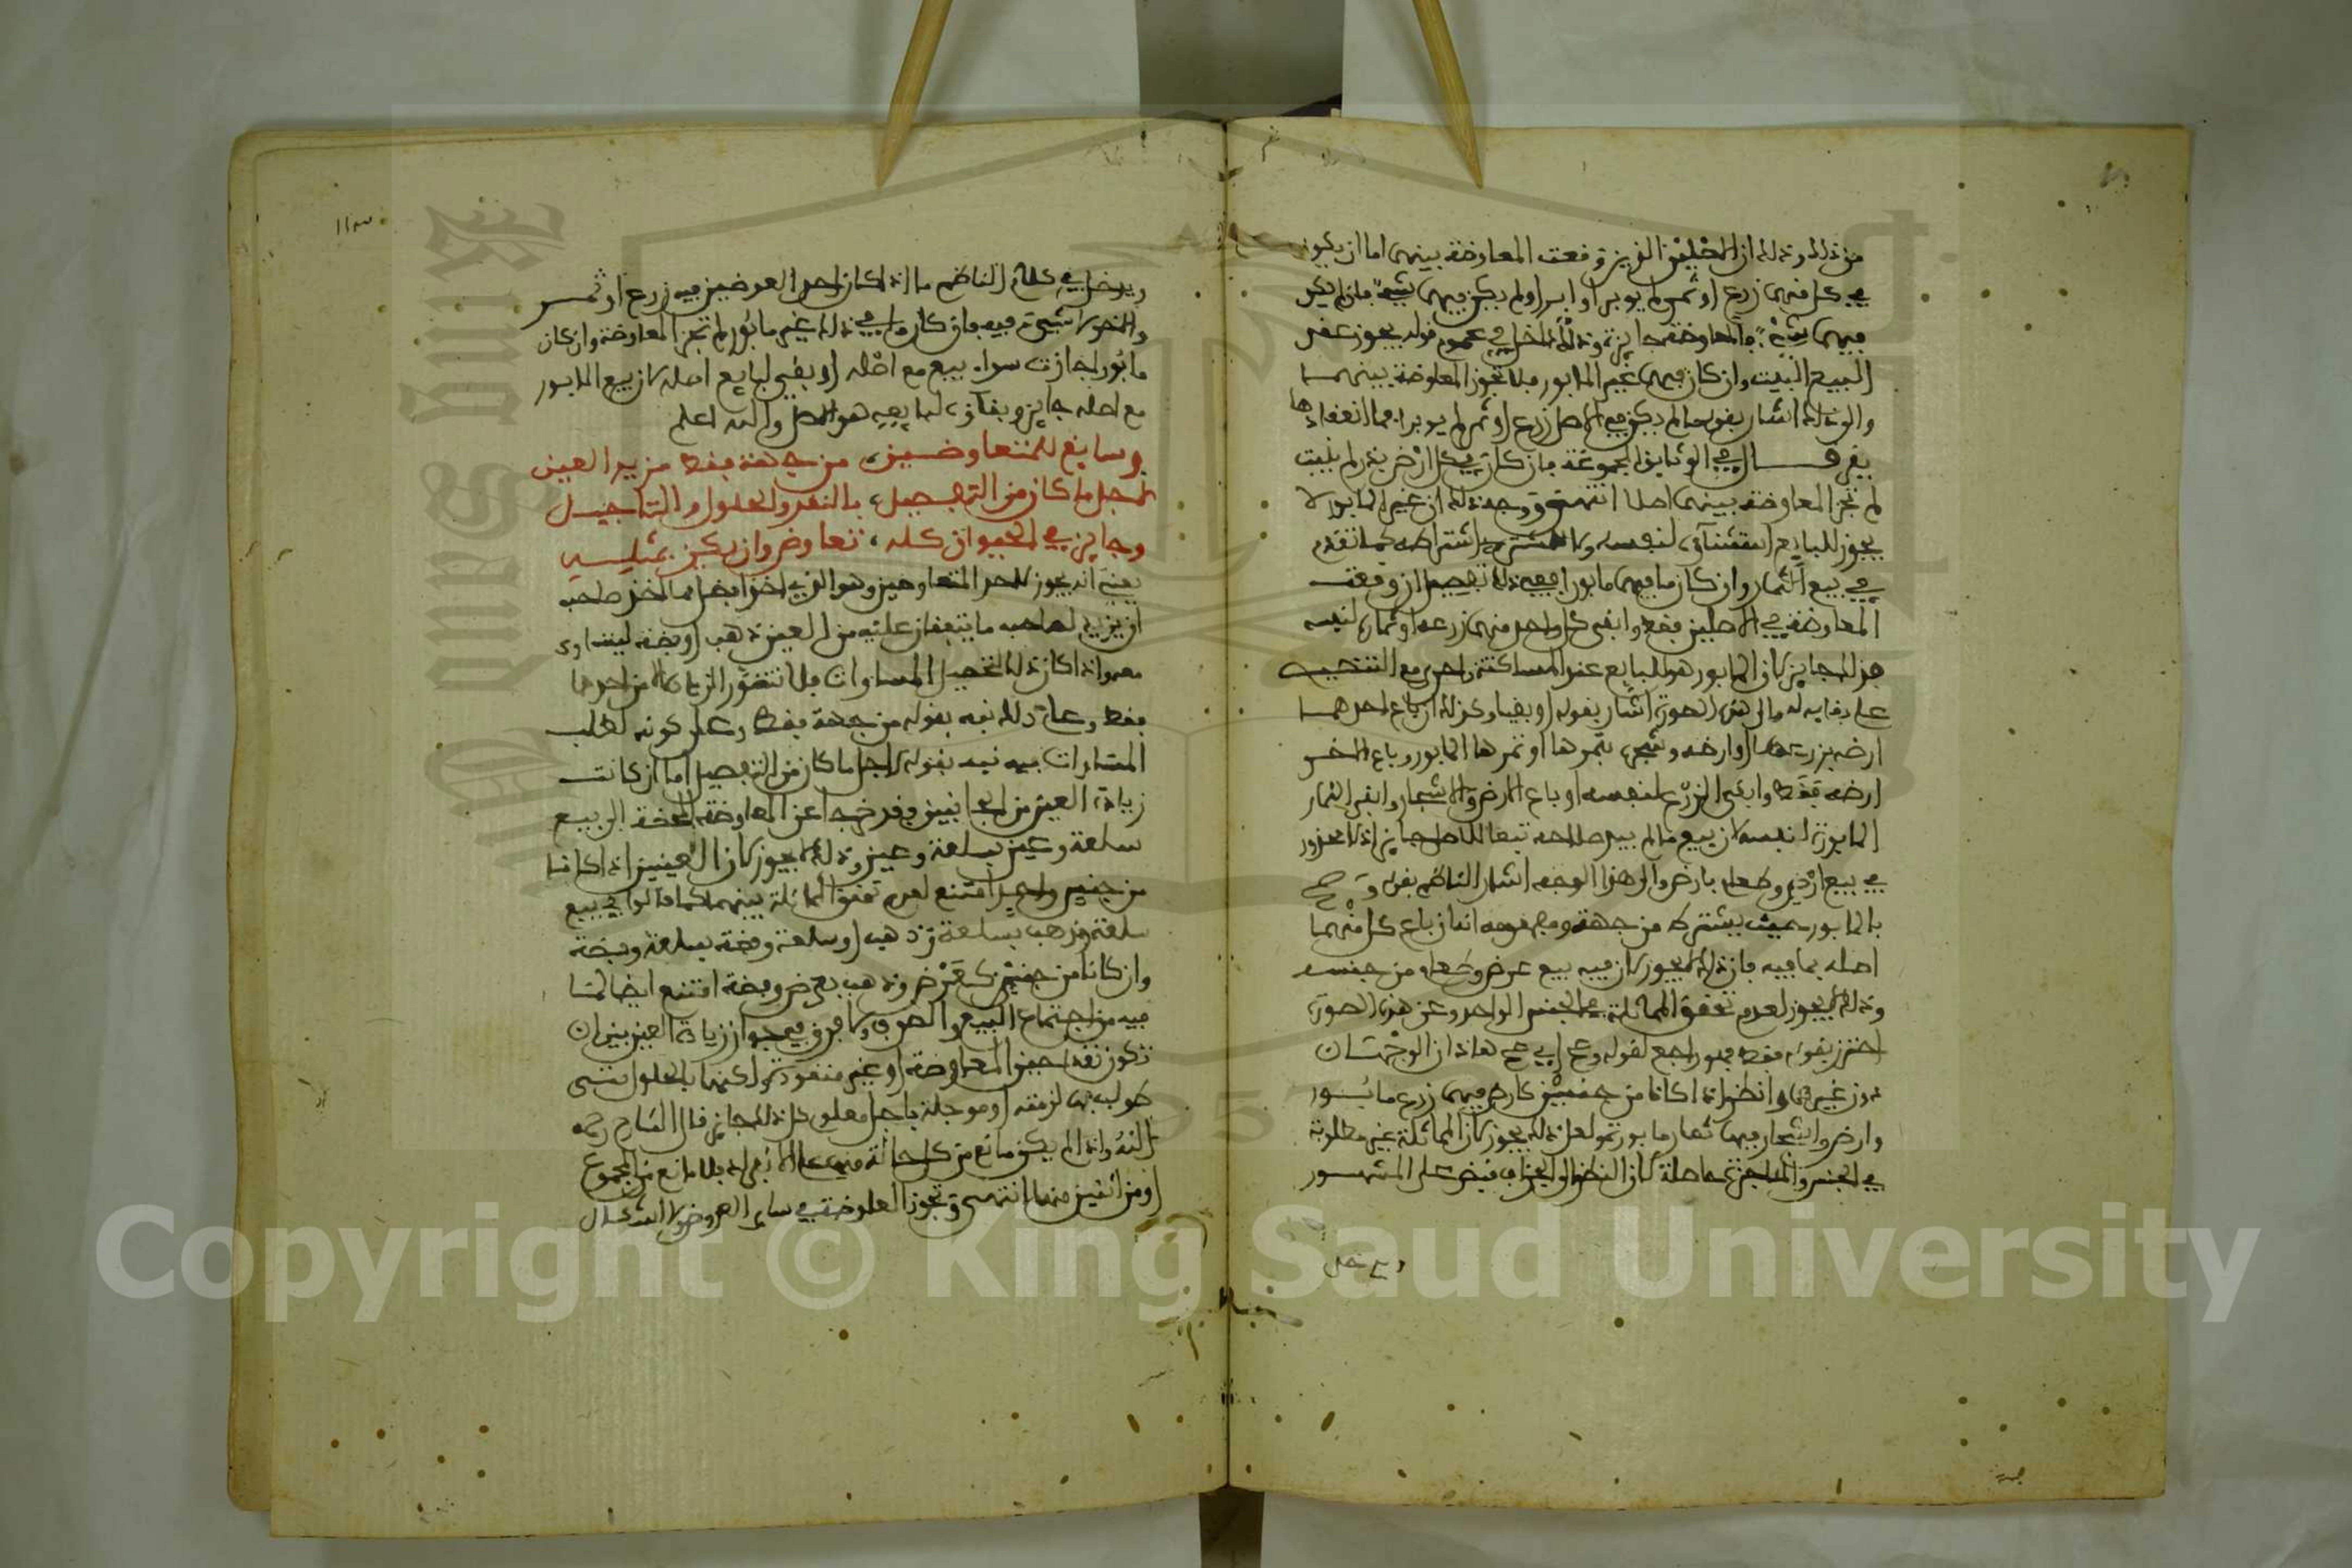 من ذلك وذلك ان الاصلين الذين وقعت المعاوضة بينهما اما ان يكون
في كل منهما زرع او ثمر لم يوبر او ابر او لم يكن فيهما شيء فان لم يكن
فيهما شيء فالمعاوضة جايزة وذلك داخل في عموم قوله يجوز عقد
البيع البيت وان كان فيهما غير المابور فلا تجوز المعاوضة بينهما
والى ذلك اشار بقوله ما لم يكن في الاصل زرع او ثمر لم يوبر فما انعقادها
يقر قال في الوثايق المجموعة فان كان في كل ارض بذر لم ينبت
لم تجز المعاوضة بينهما اصلا انتهى ووجه ذلك ان غير المابور لا
يجوز للبايع استثناؤه لنفسه ولا للمشتري اشتراطه كما تقدم
في بيع الثمار وان كان ما فيهما مابورا ففي ذلك تفصيل ان وقعت
المعاوضة في الاصلين فقط وابقى كل واحد منهما زرعه او ثماره لنفسه
فذلك جايز لان المابور هو للبايع عند المساكتة واحرى مع التنصيص
على بقايه له والى هذه الصورة اشار بقوله او بقيا وكذلك ان باع احدهما
ارضه بزرعها او ارضه وشجره بثمرها او ثمرها المابور وباع الاخر
ارضه فقط وابقى الزرع لنفسه او باع الارض والاشجار وابقى الثمار
المابورة لنفسه لان بيع ما لم يبد صلاحه تبعا للاصل جايز اذ لا محذور
في بيع ارض وطعام بارض والى هذا الوجه اشار الناظم بقوله وصح
بالمابور حيث يشترط من جهة ومفهومه انه ان باع كل منهما
اصله بما فيه فان ذلك لا يجوز لان فيه بيع عرض وطعام من جنسه
وذلك لا يجوز لعدم تحقق المماثلة في الجنس الواحد وعن هذه الصورة
احترز بقوله فقط فهو راجع لقوله وصح الى صح هاذان الوجهان
دون غيرهما وانظر اذا كانا من جنسين كارض فيها زرع مابور
وارض واشجار فيها ثمار مابورة ولعل ذلك يجوز لان المماثلة غير مطلوبة
في الجنس والمناجزة حاصلة لان النظر الى الجزاف قبض على المشهور
ويدخل
ويدخل في كلام الناظم ما اذا كان احد العوضين فيه زرع او ثمر
والاخر لا شيء فيه فان كان ما في ذلك غير مابور لم تجز المعاوضة وان كان
مابورا جازت سواء بيع مع اصله او بقي لبايع اصله لان بيع المابور
مع اصله جايز وبقاؤه لبايعه هو الاصل والله اعلم
وسايغ للمتعاوضين من جهة فقط مزيد العين
لاجل ما كان من التفضيل بالنقد والحلول والتاجيل
وجايز في الحيوان كله تعاوض وان يكن بمثله
يعني انه يجوز لاحد المتعاوضين وهو الذي اخذ افضل مما اخذ صاحبه
ان يزيد لصاحبه ما يتفقان عليه من العين ذهب او فضة ليتساوى
معه واذا كان ذلك لتحصيل المساوات فلا تتصور الزيادة الا من احدهما
فقط وعلى ذلك نبه بقوله من جهة فقط وعلى كونه لطلب
المساوات فيه نبه بقوله لاجل ما كان من التفضيل اما ان كانت
زيادة العين من الجانبين فقد خرجا عن المعاوضة المحضة الى بيع
سلعة وعين بسلعة وعين وذلك لا يجوز لان العينين اذا كانتا
من جنس واحد امتنع لعدم تحقق المماثلة بينهما كما قالوا في بيع
سلعة وذهب بسلعة وذهب او سلعة وفضة بسلعة وفضة
وان كانا من جنسين كعرض وذهب بعرض وفضة امتنع ايضا لما
فيه من اجتماع البيع والصرف ولا فرق في جواز زيادة العين بين ان
تكون نقدا حين المعاوضة او غير منقودة ولكنها بالحلول متى
طولب بها لزمته او موجلة باجل معلوم كل ذلك جايز قال الشارح رحمه
الله واذا لم يكن مانع من كل حالة منها على الانفراد فلا مانع من المجموع
او من اثنين منها انتهى وتجوز المعاوضة في ساير العروض ولا اشكال